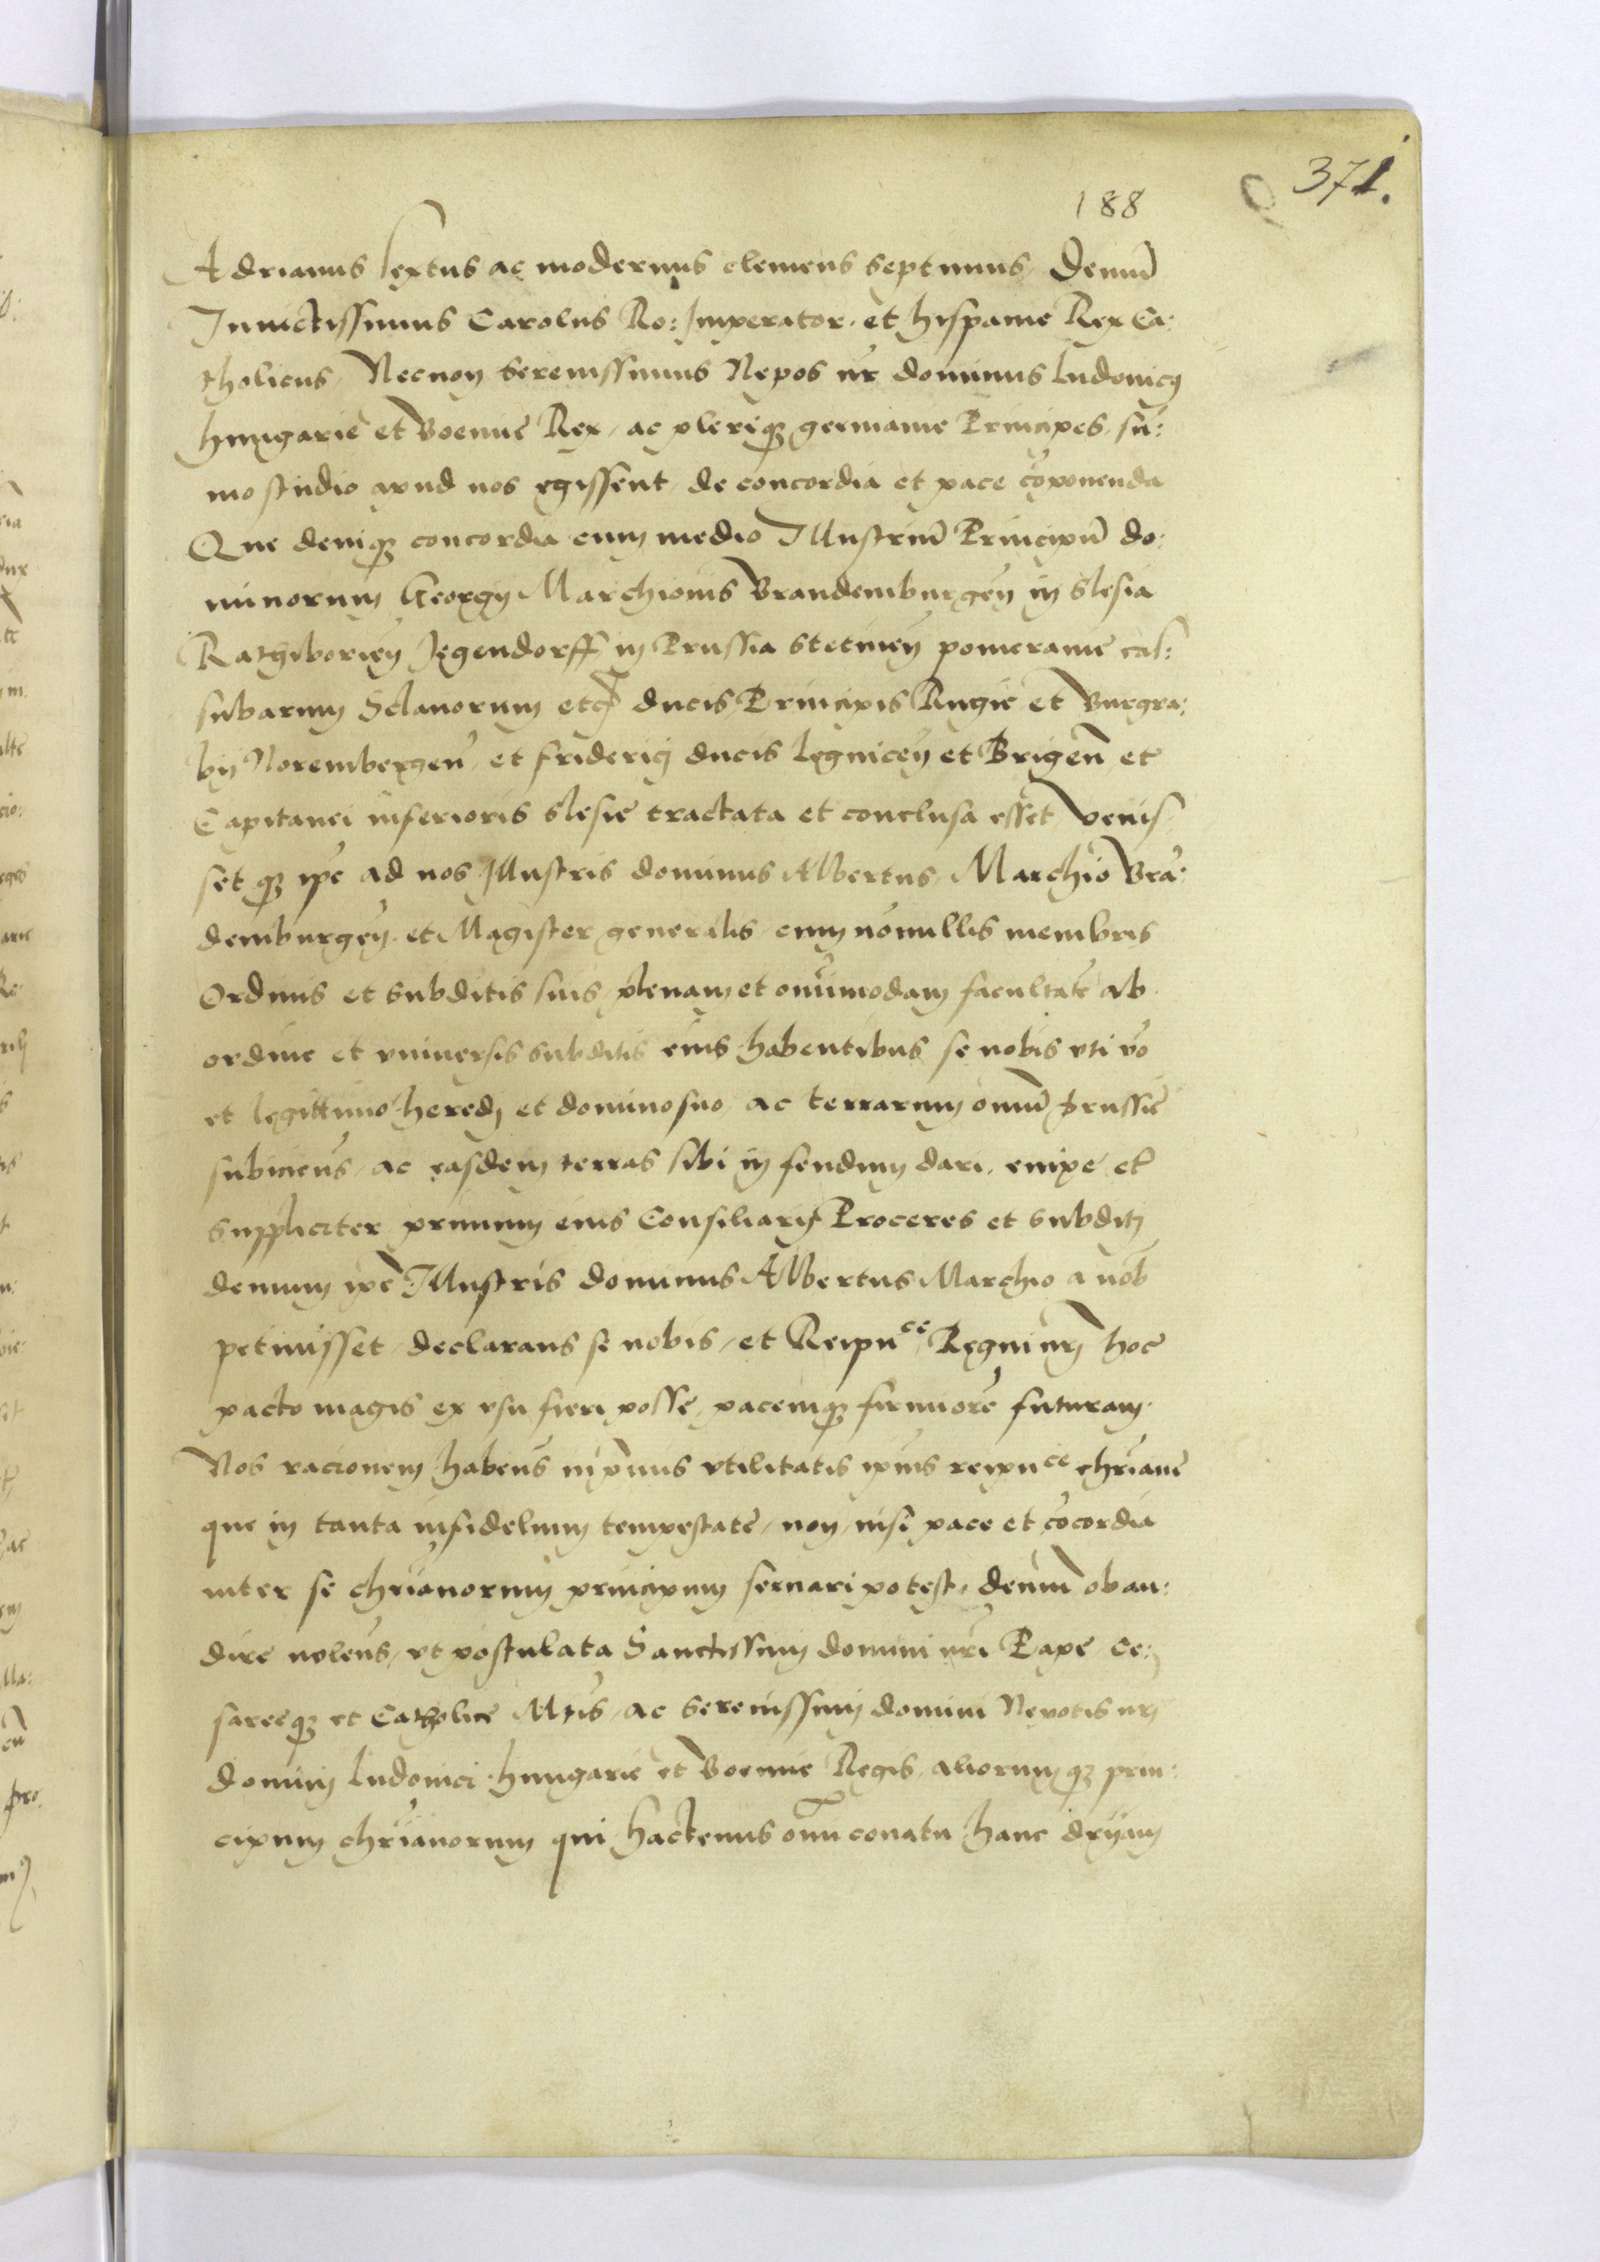 371.
188
Adrianus sextus ac modernus clemens septimus, Demū
Inuictissimus Carolus Ro: Imperator. et hispanie Rex Ca:
tholicus, Necnon serenissimus Nepos nr̄ dominus Ludouicus
hungarie et Boemie Rex, ac pleriq3 germanie Principes, sū:
mo studio apud nos egissent, de concordia et pace cōponenda
Que deniq3 concordia cum medio Illustriū Principū do:
minorum Georgij Marchionis Brandemburgeñ in slesia
Rathiborieñ Jegendorff in Prussia stetineñ pomeranie cas:
subarum Sclauorum etc̄ ducis, Principis Rugie et Burgra:
bij Norembergeñ, et friderici ducis Legniceñ et Brigeñ et
Capitanei inferioris slesie tractata et conclusa esset, venis:
set q3 ip̄e ad nos Illustris dominus Albertus, Marchio Brā:
demburgeñ. et Magister generalis cum nōnullis membris
Ordinis et subditis suis, plenam et om̄imodam facultatē ab
ordine et vniuersis subditis eius habentibus se nobis vti vō
et legittimo heredj et domino suo, ac terrarum om̄iū prussie
subiciens, ac easdem terras sibi in feudum dari, enixe, et
suppliciter primum eius Consiliarij Proceres et subditj
demum ip̄e Illustris dominus Albertus Marchio a nob̄
petiuisset, declarans se nobis, et Reipu^ce Regni nrj̄ hoc
pacto magis ex vsu fieri posse, pacemq3 firmiorē futuram.
Nos racionem habens inp̄mis vtilitatis ipius reipu^ce chr̄iane
que in tanta infidelium tempestate, non, nisi pace et cōcordia
inter se chr̄ianorum principum seruari potest, demū obau:
dire nolens, vt postulata Sanctissimj domini nr̄i Pape Ce:
sareeq3 et Catholice Mt̄is, ac serenissimj domini Nepotis nrj̄
dominj Ludouici hungarie et Boemie Regis, aliorumq3 prin:
cipum chr̄ianorum qui hactenus om̄i conatu hanc dr̄iam